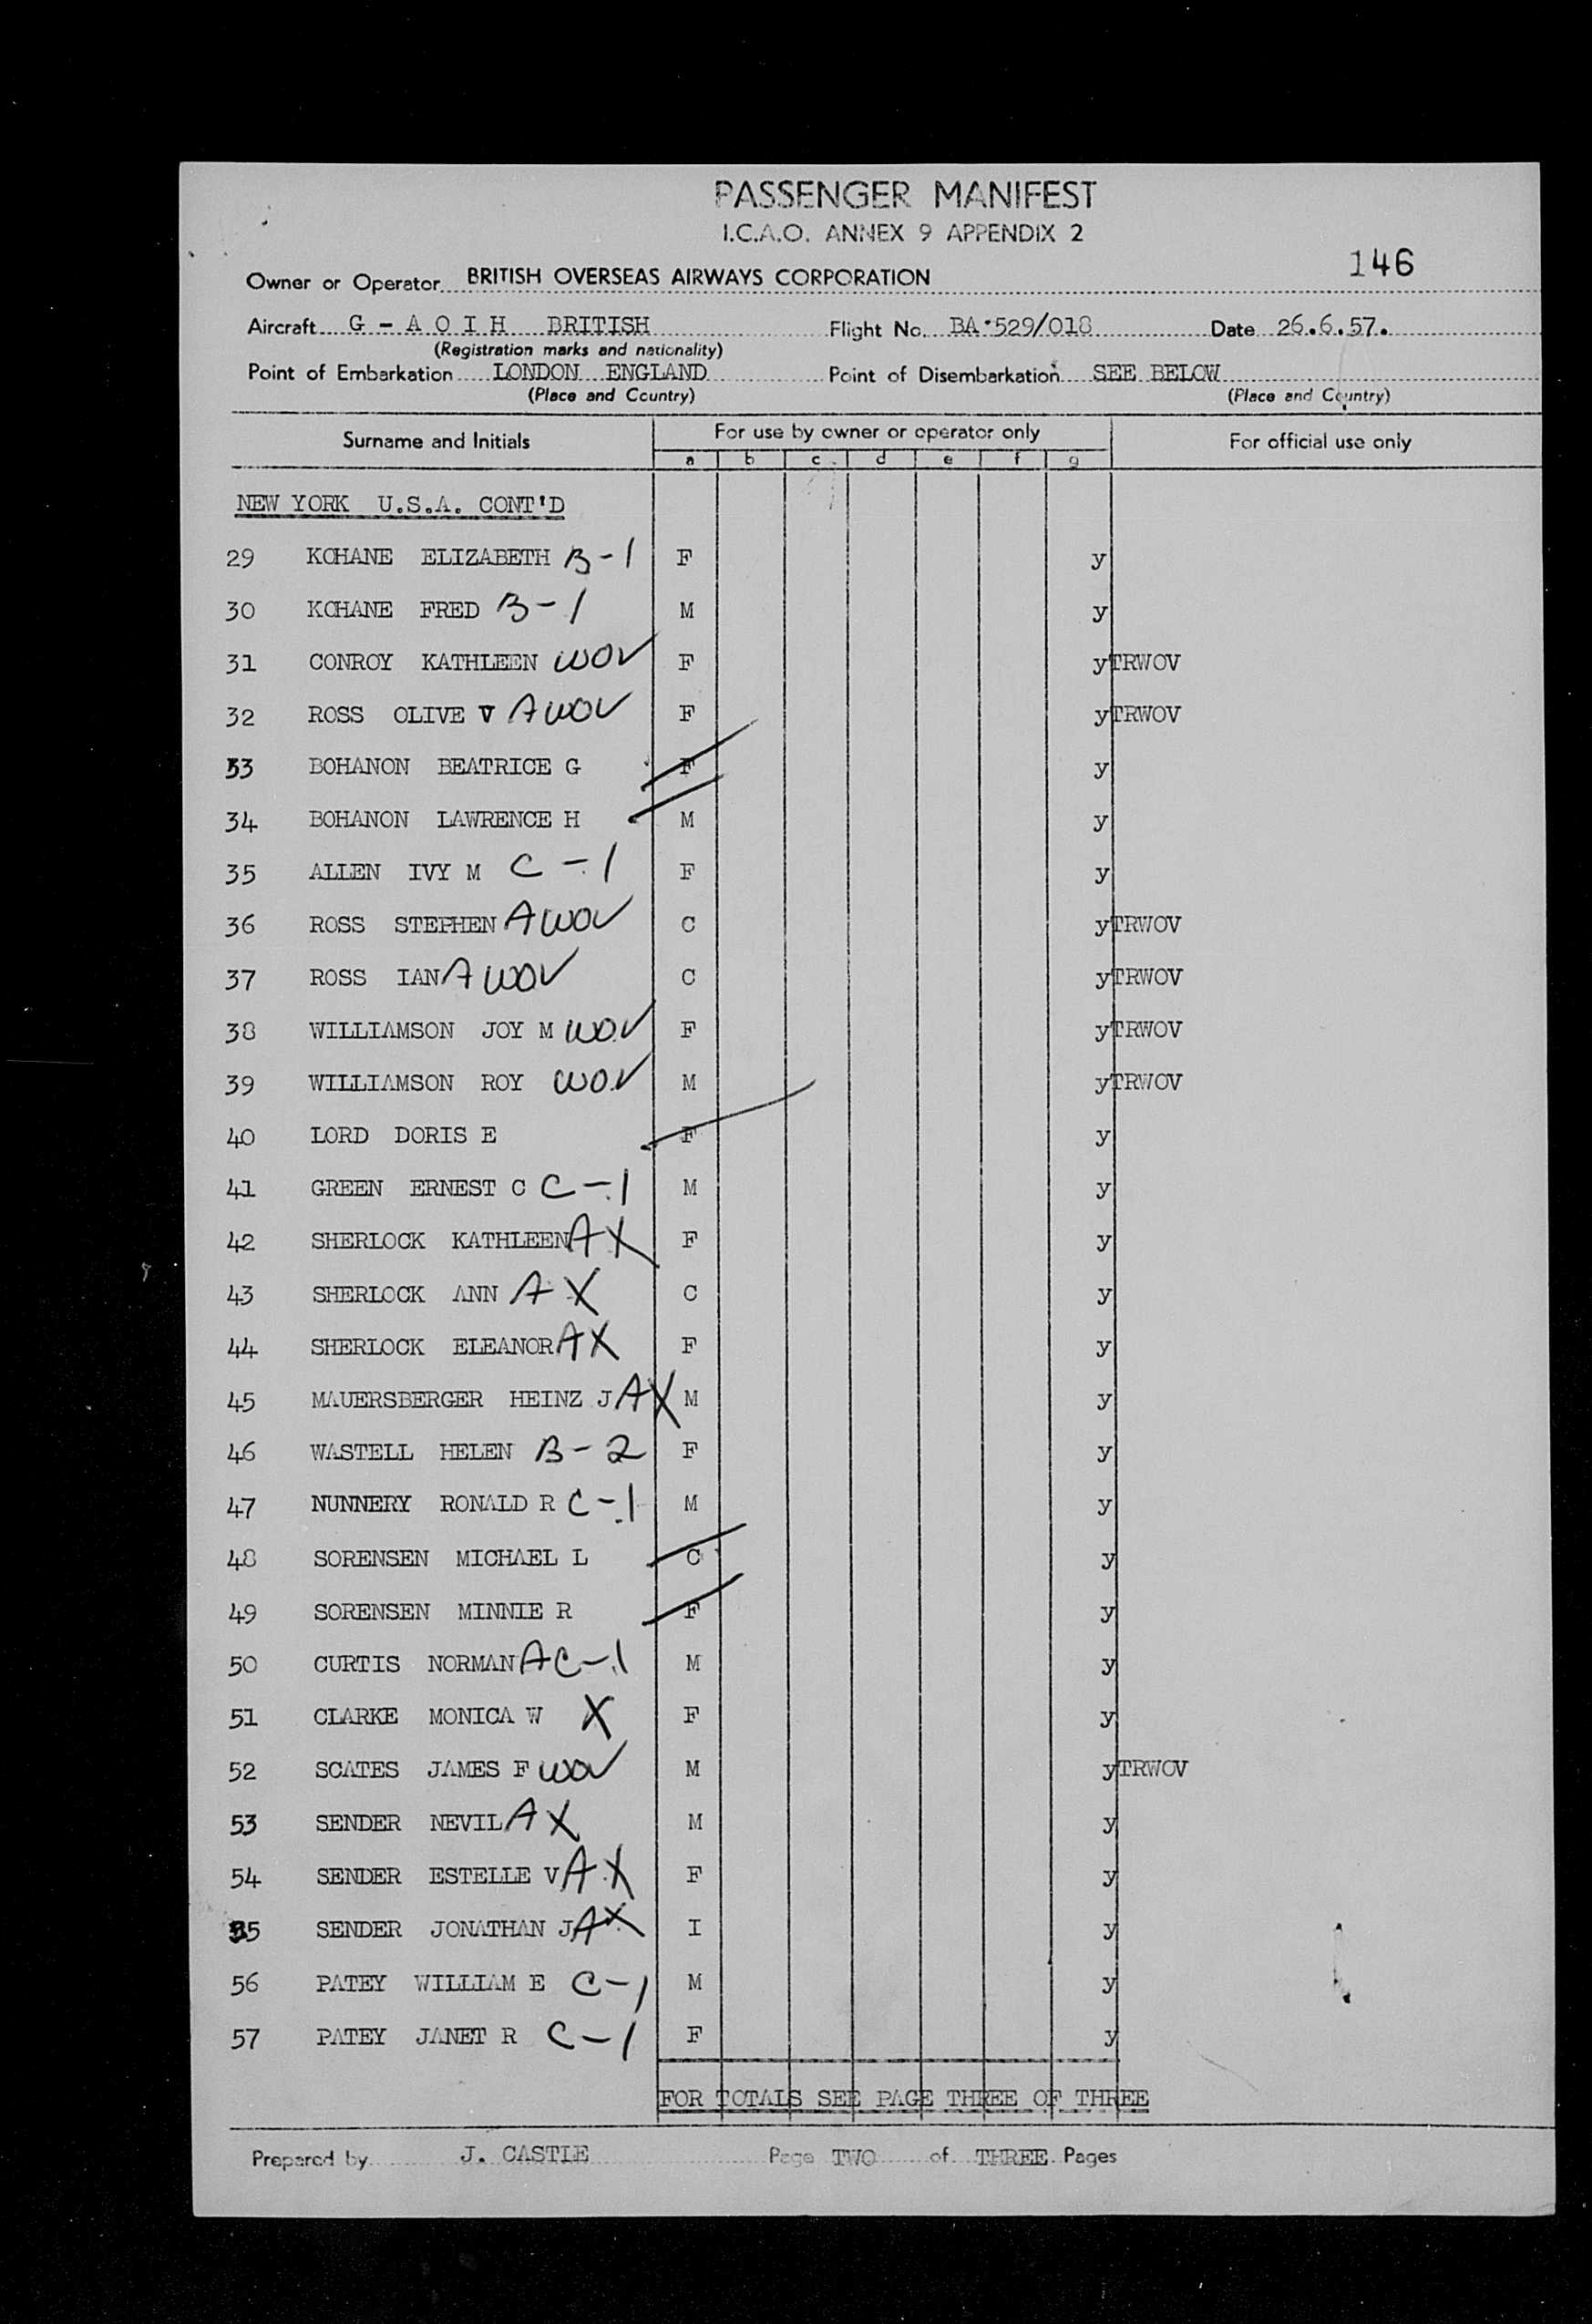 PASSENGER MANIFEST
I.C.A.O. ANNEX 9 APPENDIX 2
146
Owner or Operator BRITISH OVERSEAS AIRWAYS CORPORATION
Aircraft G - A O I H BRITISH Flight No. BA 529/018 Date 26.6.57.
(Registration marks and nationality)
Point of Embarkation LONDON ENGLAND Point of Disembarkation SEE BELOW
(Place and Country) (Place and Country)
Surname and Initials For use by owner or operator only For official use only
a b c d e f g
NEW YORK U.S.A. CONT'D
29 KOHANE ELIZABETH B-1 F y
30 KOHANE FRED B-1 M y
31 CONROY KATHLEEN WOV F y TRWOV
32 ROSS OLIVE V A WOV F y TRWOV
33 BOHANON BEATRICE G F y
34 BOHANON LAWRENCE H M y
35 ALLEN IVY M C-1 F y
36 ROSS STEPHEN A WOV C y TRWOV
37 ROSS IAN A WOV C y TRWOV
38 WILLIAMSON JOY M WOV F y TRWOV
39 WILLIAMSON ROY WOV M y TRWOV
40 LORD DORIS E F y
41 GREEN ERNEST C C-1 M y
42 SHERLOCK KATHLEEN A X F y
43 SHERLOCK ANN A X C y
44 SHERLOCK ELEANOR A X F y
45 MAUERSBERGER HEINZ J A X M y
46 WASTELL HELEN B-2 F y
47 NUNNERY RONALD R C-1 M y
48 SORENSEN MICHAEL L C y
49 SORENSEN MINNIE R F y
50 CURTIS NORMAN A C-1 M y
51 CLARKE MONICA W X F y
52 SCATES JAMES F WOV M y TRWOV
53 SENDER NEVIL A X M y
54 SENDER ESTELLE V A X F y
55 SENDER JONATHAN J A X I y
56 PATEY WILLIAM E C-1 M y
57 PATEY JANET R C-1 F y
FOR TOTALS SEE PAGE THREE OF THREE
Prepared by J. CASTLE Page TWO of THREE Pages